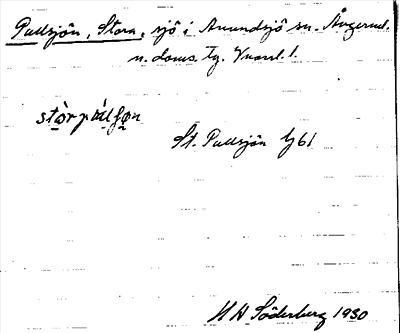 Pullsjön, Stora, sjö i Anundsjö sn. Ångerml.
n. doms. tg. 
stòrpúlʃọn
St. Pullsjön 61
H H Söderberg 1930